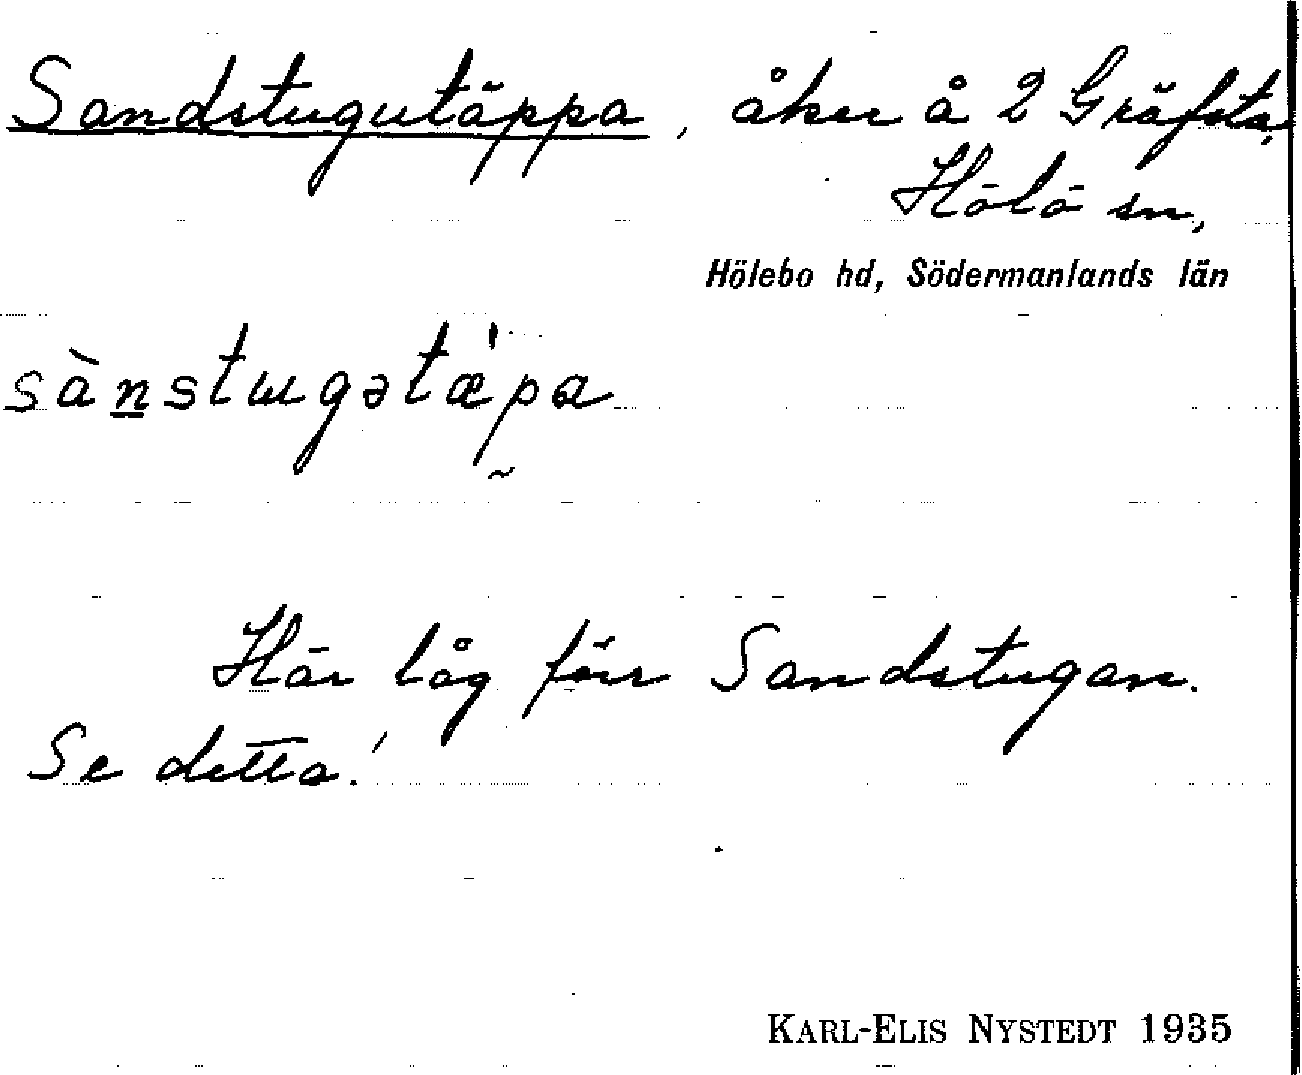 Sandstugutäppa, åker å 2 Gräfsta,
Hölö sn,
Hölebo hd, Södermanlands län
sànstɯgətæ̀pa
Här låg förr Sandstugan.
Se detta!
KARL-ELIS NYSTEDT 1935